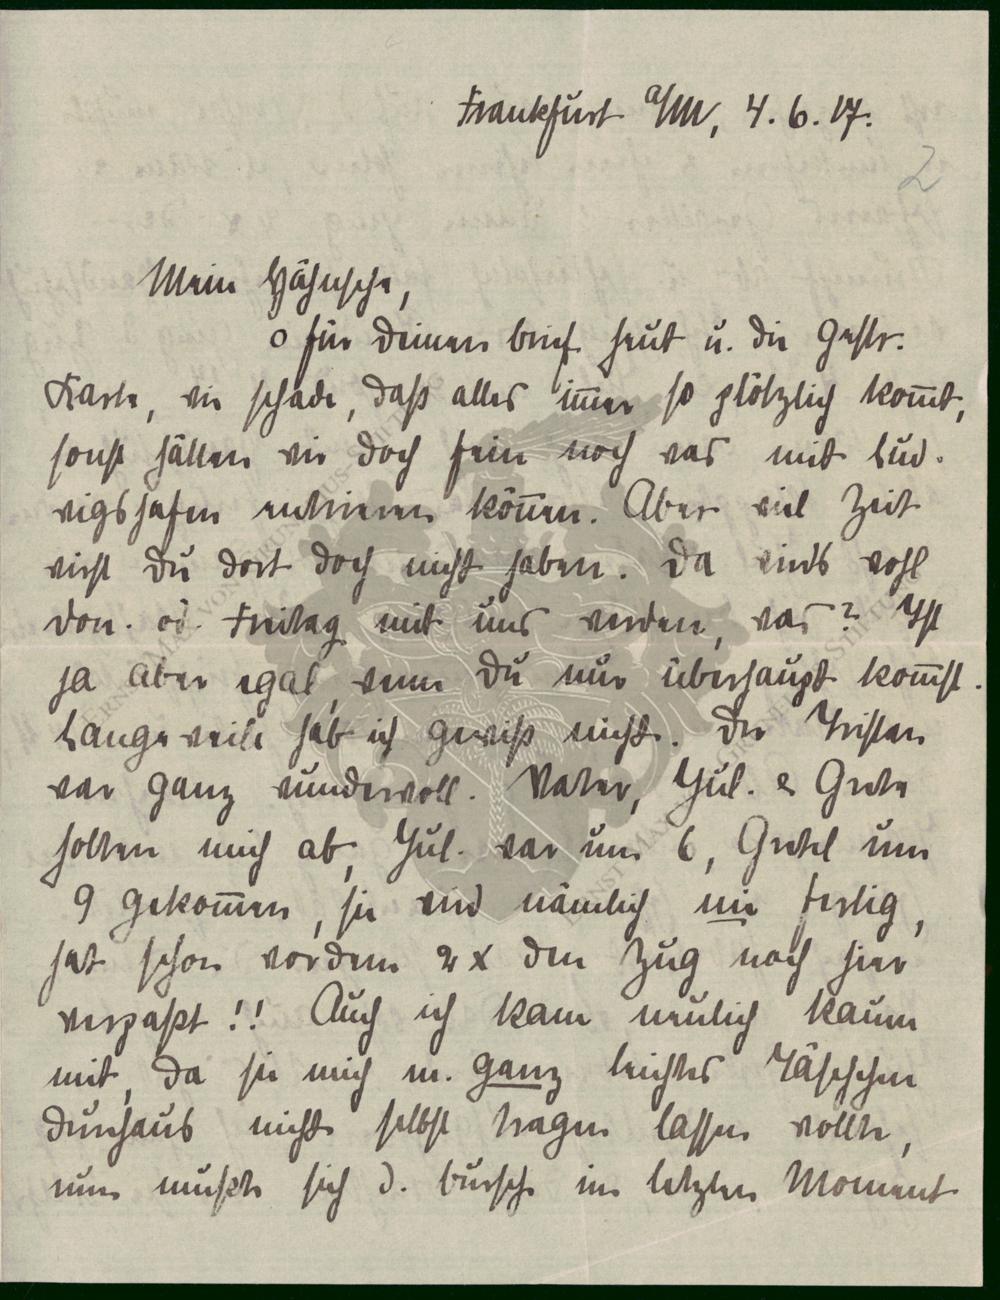 Frankfurt a/M, 4. 6. 17.
2
Mein Hähnsche,
o für deinen brief heut u. die Gestr.
Karte, wie schade, daß alles im̅er so plötzlich kom̅t,
sonst hätten wir doch fein noch was mit Lud-
wigshafen entrieren kön̅en. Aber viel Zeit
wirst du dort doch nicht haben. Da wird's wohl
Don. od. Freitag mit uns werden, was? Ist
ja aber egal, wenn Du nur überhaupt kom̅st.
Langeweile hab ich gewiß nicht. Der Tristan
war ganz wundervoll. Vater, Jul. & Grete
holten mich ab, Jul. war um 6, Gretel um
9 gekom̅en, sie wird nämlich nie fertig,
hat schon vordem 2 x den Zug nach hier
verpaßt!! Auch ich kam neulich kaum
mit, da sie mich m. ganz leichtes Täschchen
durchaus nicht selbst tragen lassen wollte,
nun mußte sich d. bursche im letzten Moment
ERNST-MAX-VON-GRUNELIUS-STIFTUNG